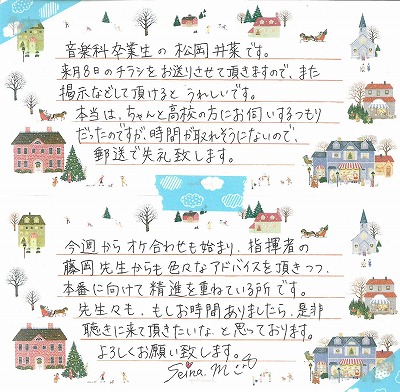 音楽科卒業生の 松岡 井菜です。
来月8日のチラシをお送りさせて頂きますので、また
掲示などして頂けると うれしいです。
本当は、ちゃんと高校の方にお伺いするつもり
だったのですが、時間が取れそうにないので、
郵送で失礼致します。
今週からオケ合わせも始まり、指揮者の
藤岡先生からも色々なアドバイスを頂きつつ、
本番に向けて精進を重ねている所です。
先生々も、もしお時間ありましたら、是非
聴きに来て頂きたいな、と思っております。
よろしくお願い致します。
Seina M